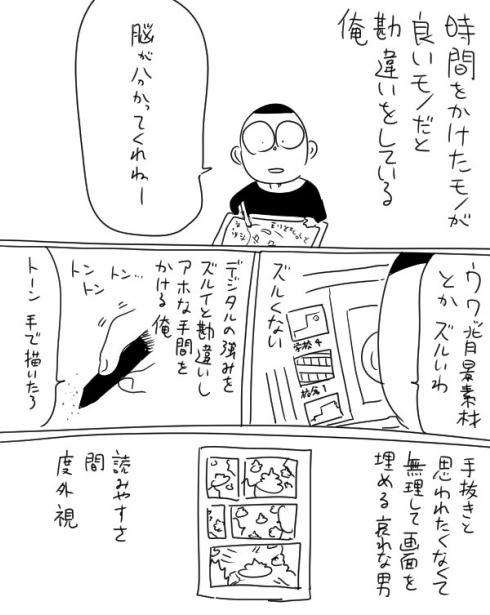 時間をかけたモノが
良いモノだと
勘違いをしている
俺
脳が分かってくれねー
ウワ背景素材
とかズルいわ
学校4
校舎1
ズルくない
デジタルの強みを
ズルイと勘違いし
アホな手間を
かける俺
トントン…
トン
トーン手で描いたろ
手抜きと
思われたくなくて
無理して画面を
埋める哀れな男
読みやすさ
間
度外視